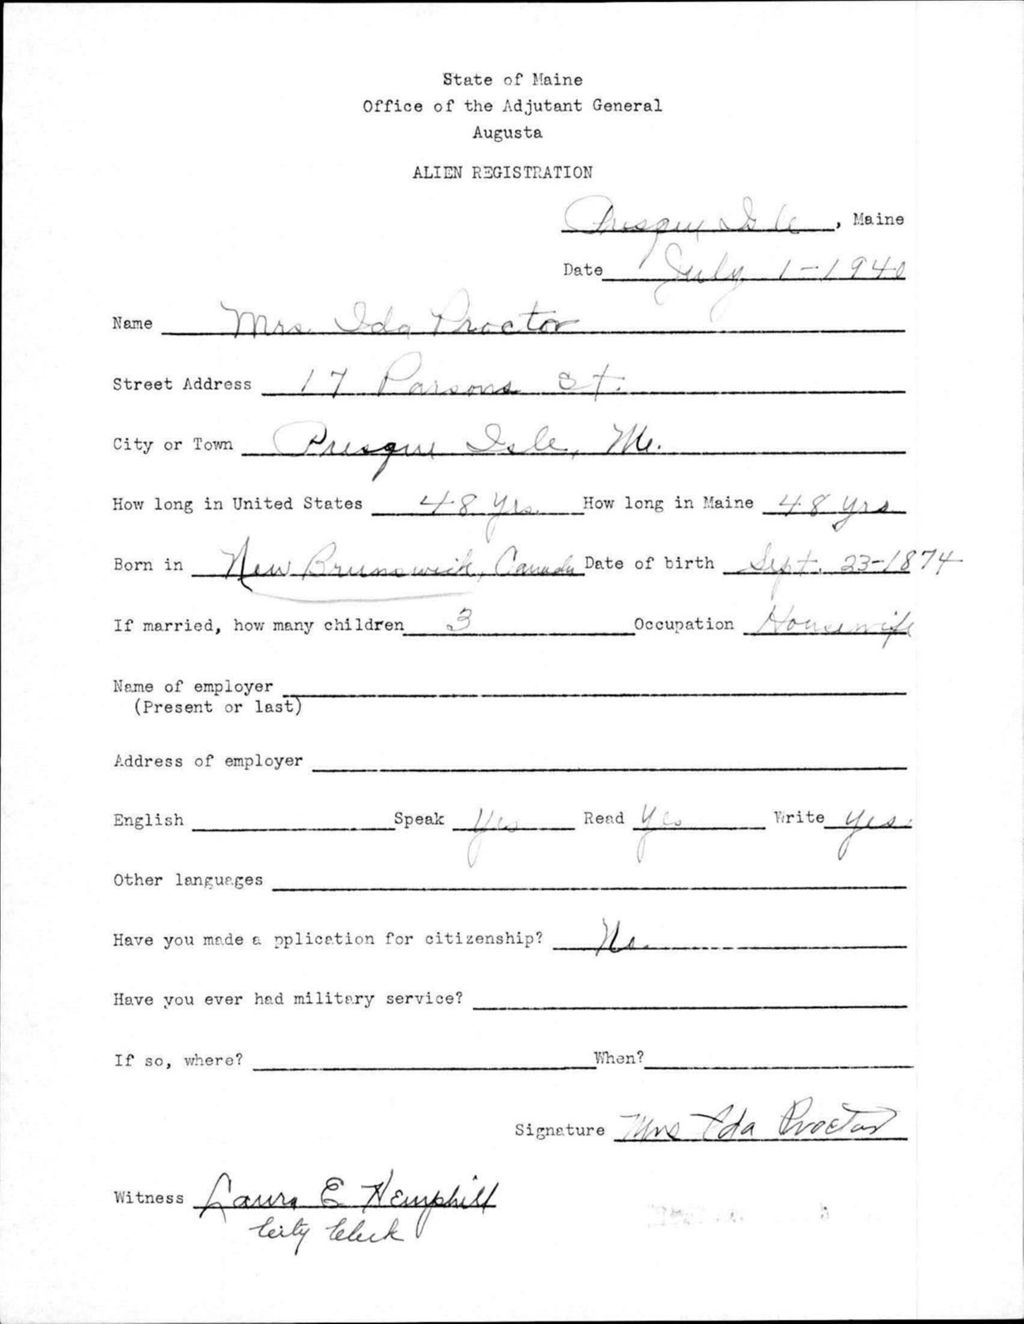 State of Maine
Office of the Adjutant General
Augusta
ALIEN REGISTRATION
Presque Isle, Maine
Date July 1-1940
Name Mrs. Ida Proctor
Street Address 17 Parsons St.
City or Town Presque Isle, Me.
How long in United States 48 yrs. How long in Maine 48 yrs
Born in New Brunswick, Canada Date of birth Sept. 23-1874
If married, how many children 3 Occupation Housewife
Name of employer
(Present or last)
Address of employer
English Speak Yes Read Yes Write Yes.
Other languages
Have you made a pplication for citizenship? No.
Have you ever had military service?
If so, where? When?
Signature Mrs Ida Proctor
Witness Laura E Hemphill
City Clerk